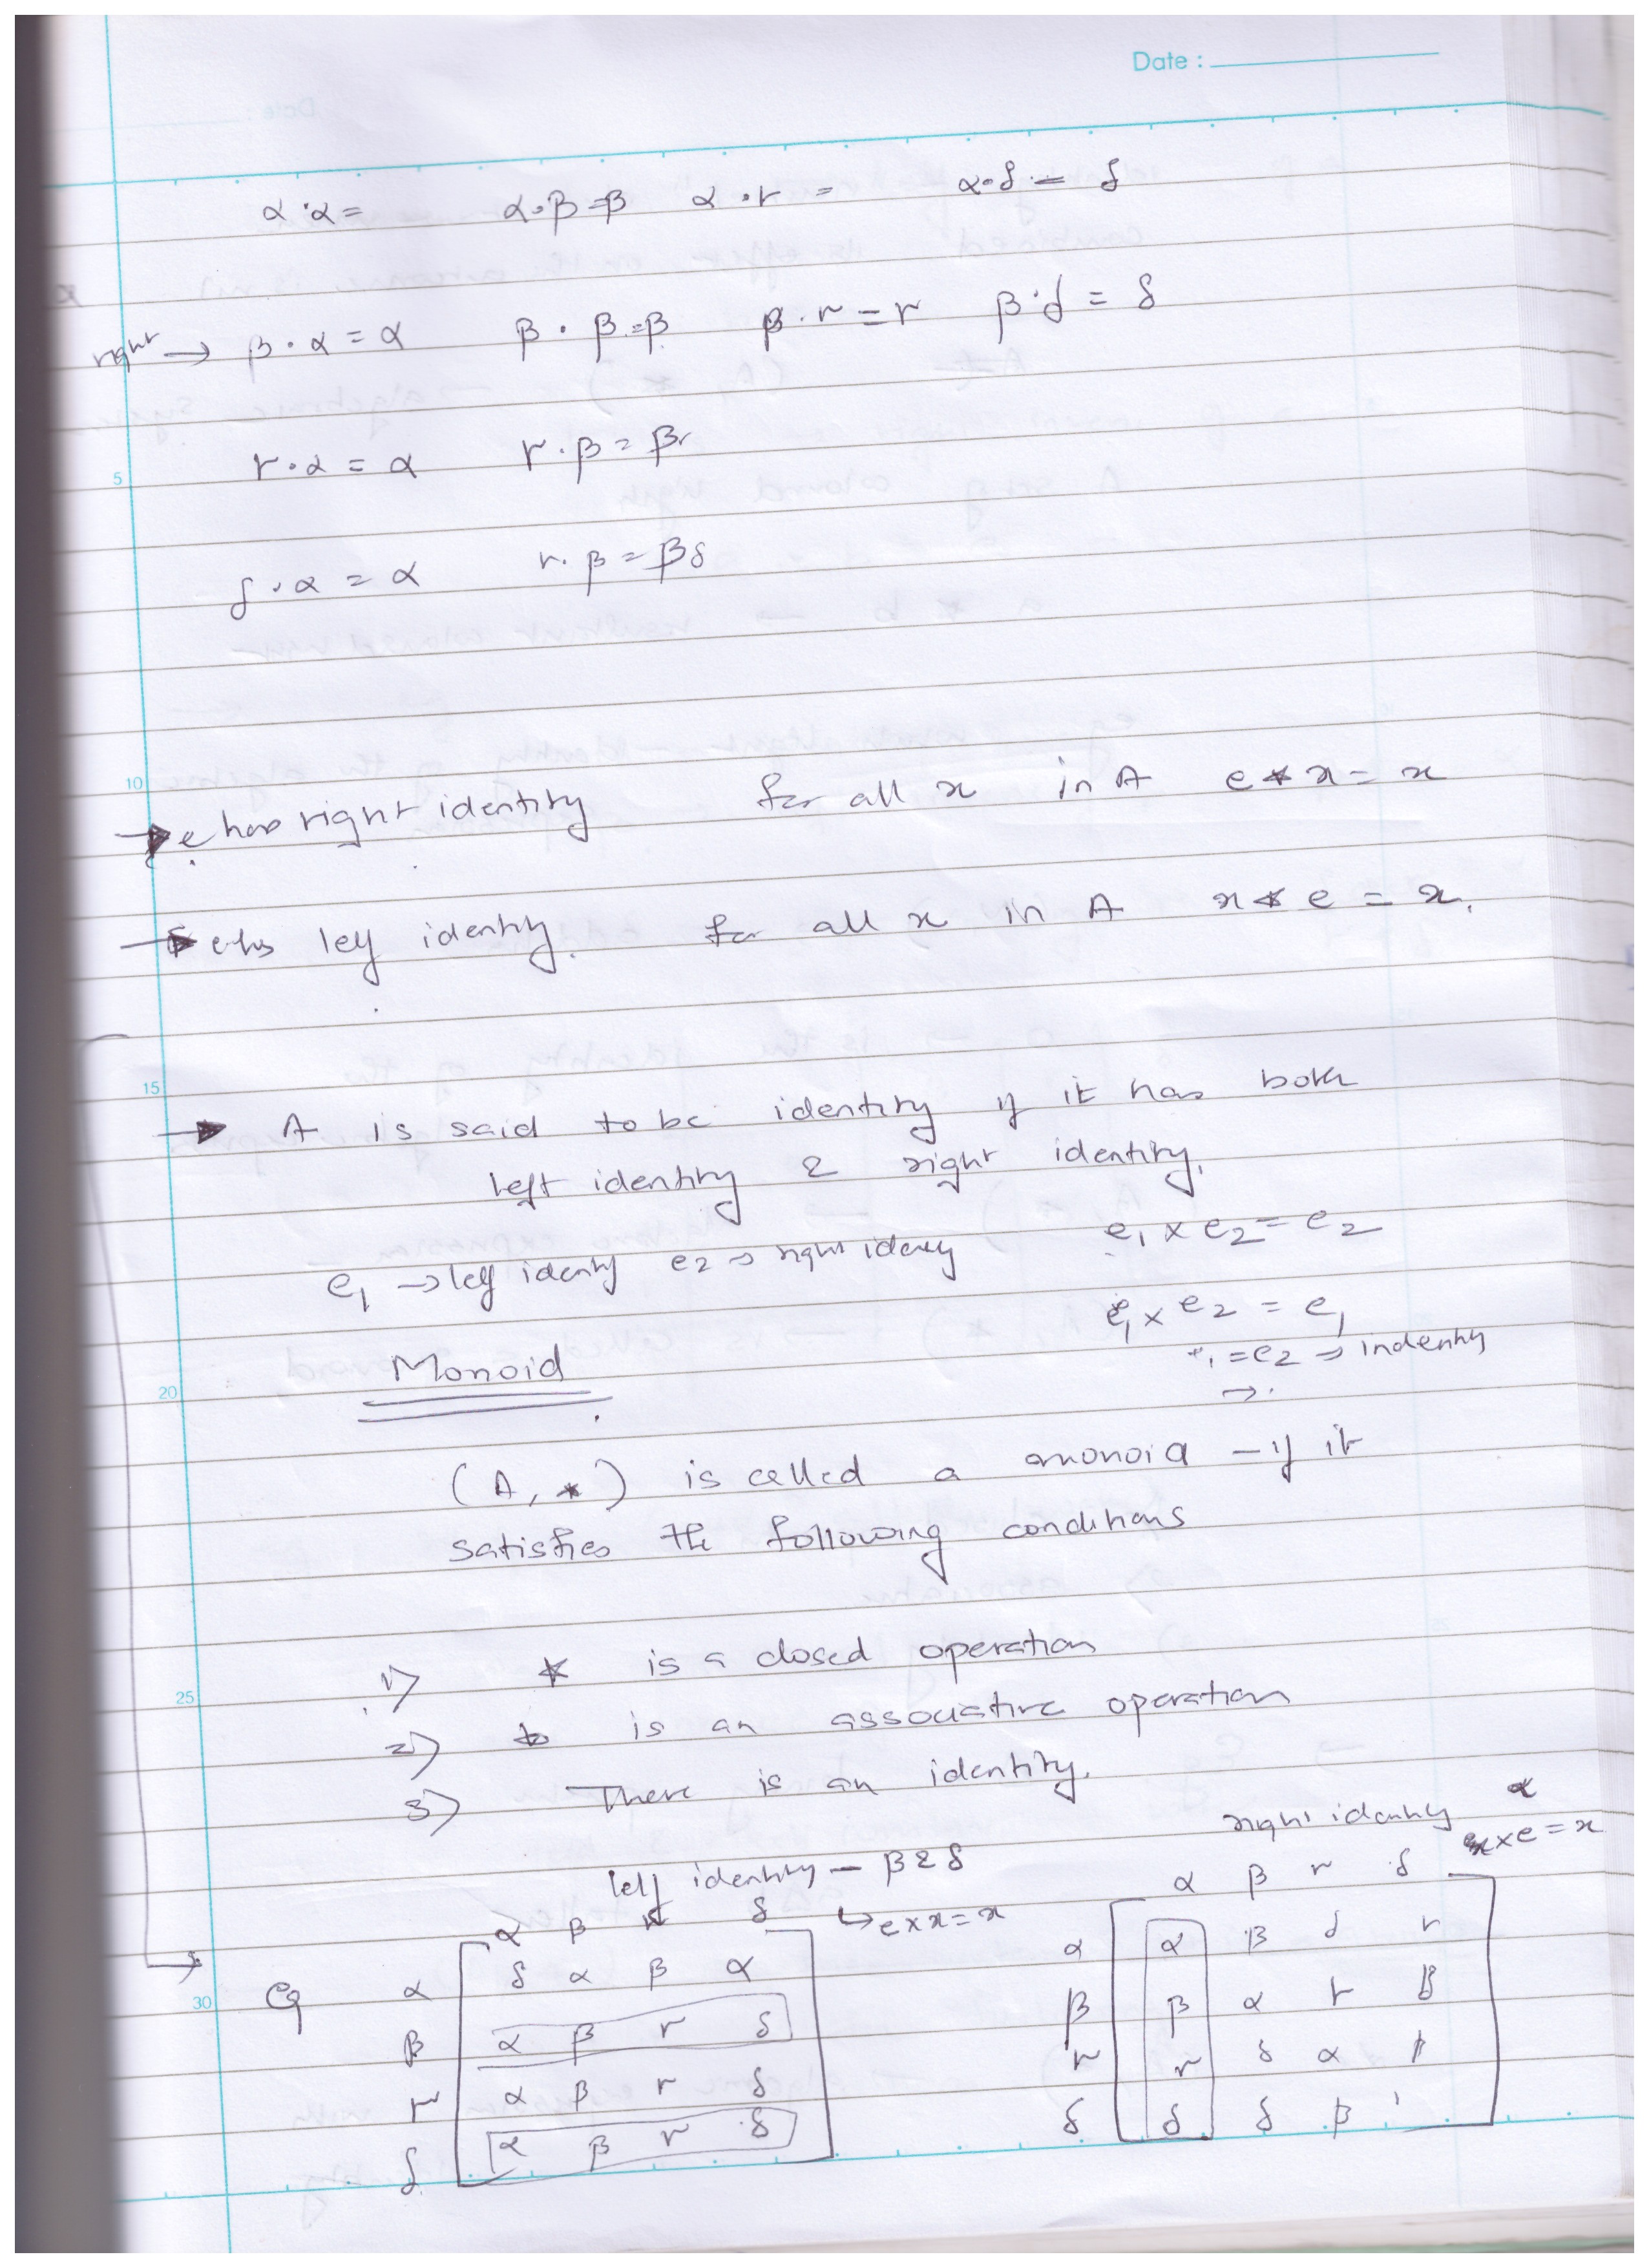 Date :
α · α = α · β = β α · r = α · δ = δ
right → β · α = α β · β = β β · r = r β · δ = δ
5
r · α = α r · β = βr
δ · α = α r · β = βδ
10
→ e has right identity for all x in A e * x = x
→ e hs lef identity. for all x in A x * e = x.
15
→ A is said to be identity if it has both
left identity & right identity.
e1 → lef identy e2 → right idenity e1 × e2 = e2
e1 × e2 = e1
e1 = e2 → indentity
→ .
Monoid
20
(A, *) is called a monoid – if it
satisfies the following conditions
1) * is a closed operation
25
2) * is an associative operation
3) There is an identity.
left identity – β & δ
↳ e × x = x
α β r δ
30
Eg α δ α β α
β α β r δ
r α β r δ
δ α β r δ
right identity α
x × e = x
α β r δ
α α β δ r
β β α r β
r r δ α β
δ δ δ β